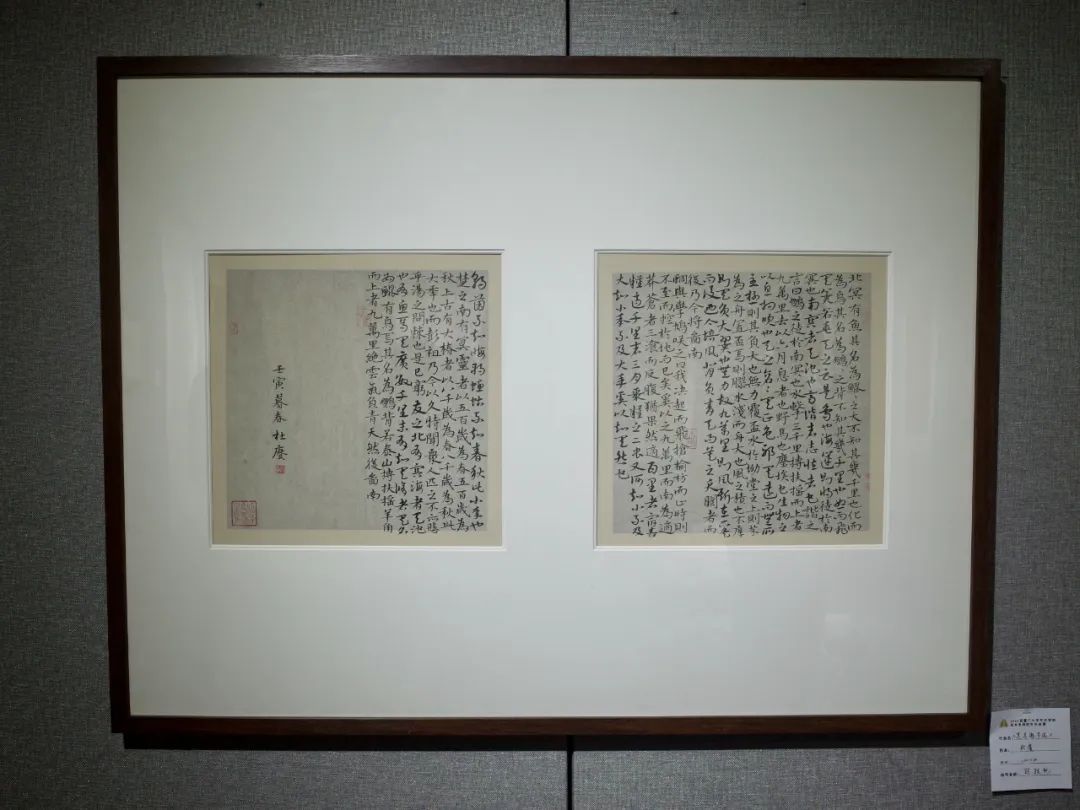 北冥有魚其名為鯤〻之大不知其幾千里也化而
為鳥其名為鵬〻之背不知其幾千里也怒而飛
其翼若垂天之雲是鳥也海運則將徙於南
冥也南冥者天池也齊諧者志怪者也諧之
言曰鵬之徙於南冥也水擊三千里摶扶搖而上者
九萬里去以六月息者也野馬也塵埃也生物之
以息相吹也天之蒼〻其正色邪其遠而無所
至極則其負大也無力覆盃水於坳堂之上則芥
為之舟置盃焉則膠水淺而舟大也風之積也不厚
則其負大翼也無力故九萬里則風斯在下矣
而後乃今培風背負青天而莫之夭閼者而
後乃今將圖南
蜩與學鳩笑之曰我決起而飛槍榆枋而止時則
不至而控於地而已矣奚以之九萬里而南為適
莽蒼者三湌而反腹猶果然適百里者宿舂
糧適千里者三月聚糧之二虫又何知小知不及
大知小年不及大年奚以知其然也
朝菌不知晦朔蟪蛄不知春秋此小年也
楚之南有冥靈者以五百歲為春五百歲為
秋上古有大椿者以八千歲為春八千歲為秋此
大年也而彭祖乃今以久特聞衆人匹之不亦悲
乎湯之問棘也是已窮髮之北有冥海者天池
也有魚焉其廣數千里未有知其脩者其名
為鯤有鳥焉其名為鵬背若泰山摶扶搖羊角
而上者九萬里絕雲氣負青天然後圖南
壬寅暮春 杜